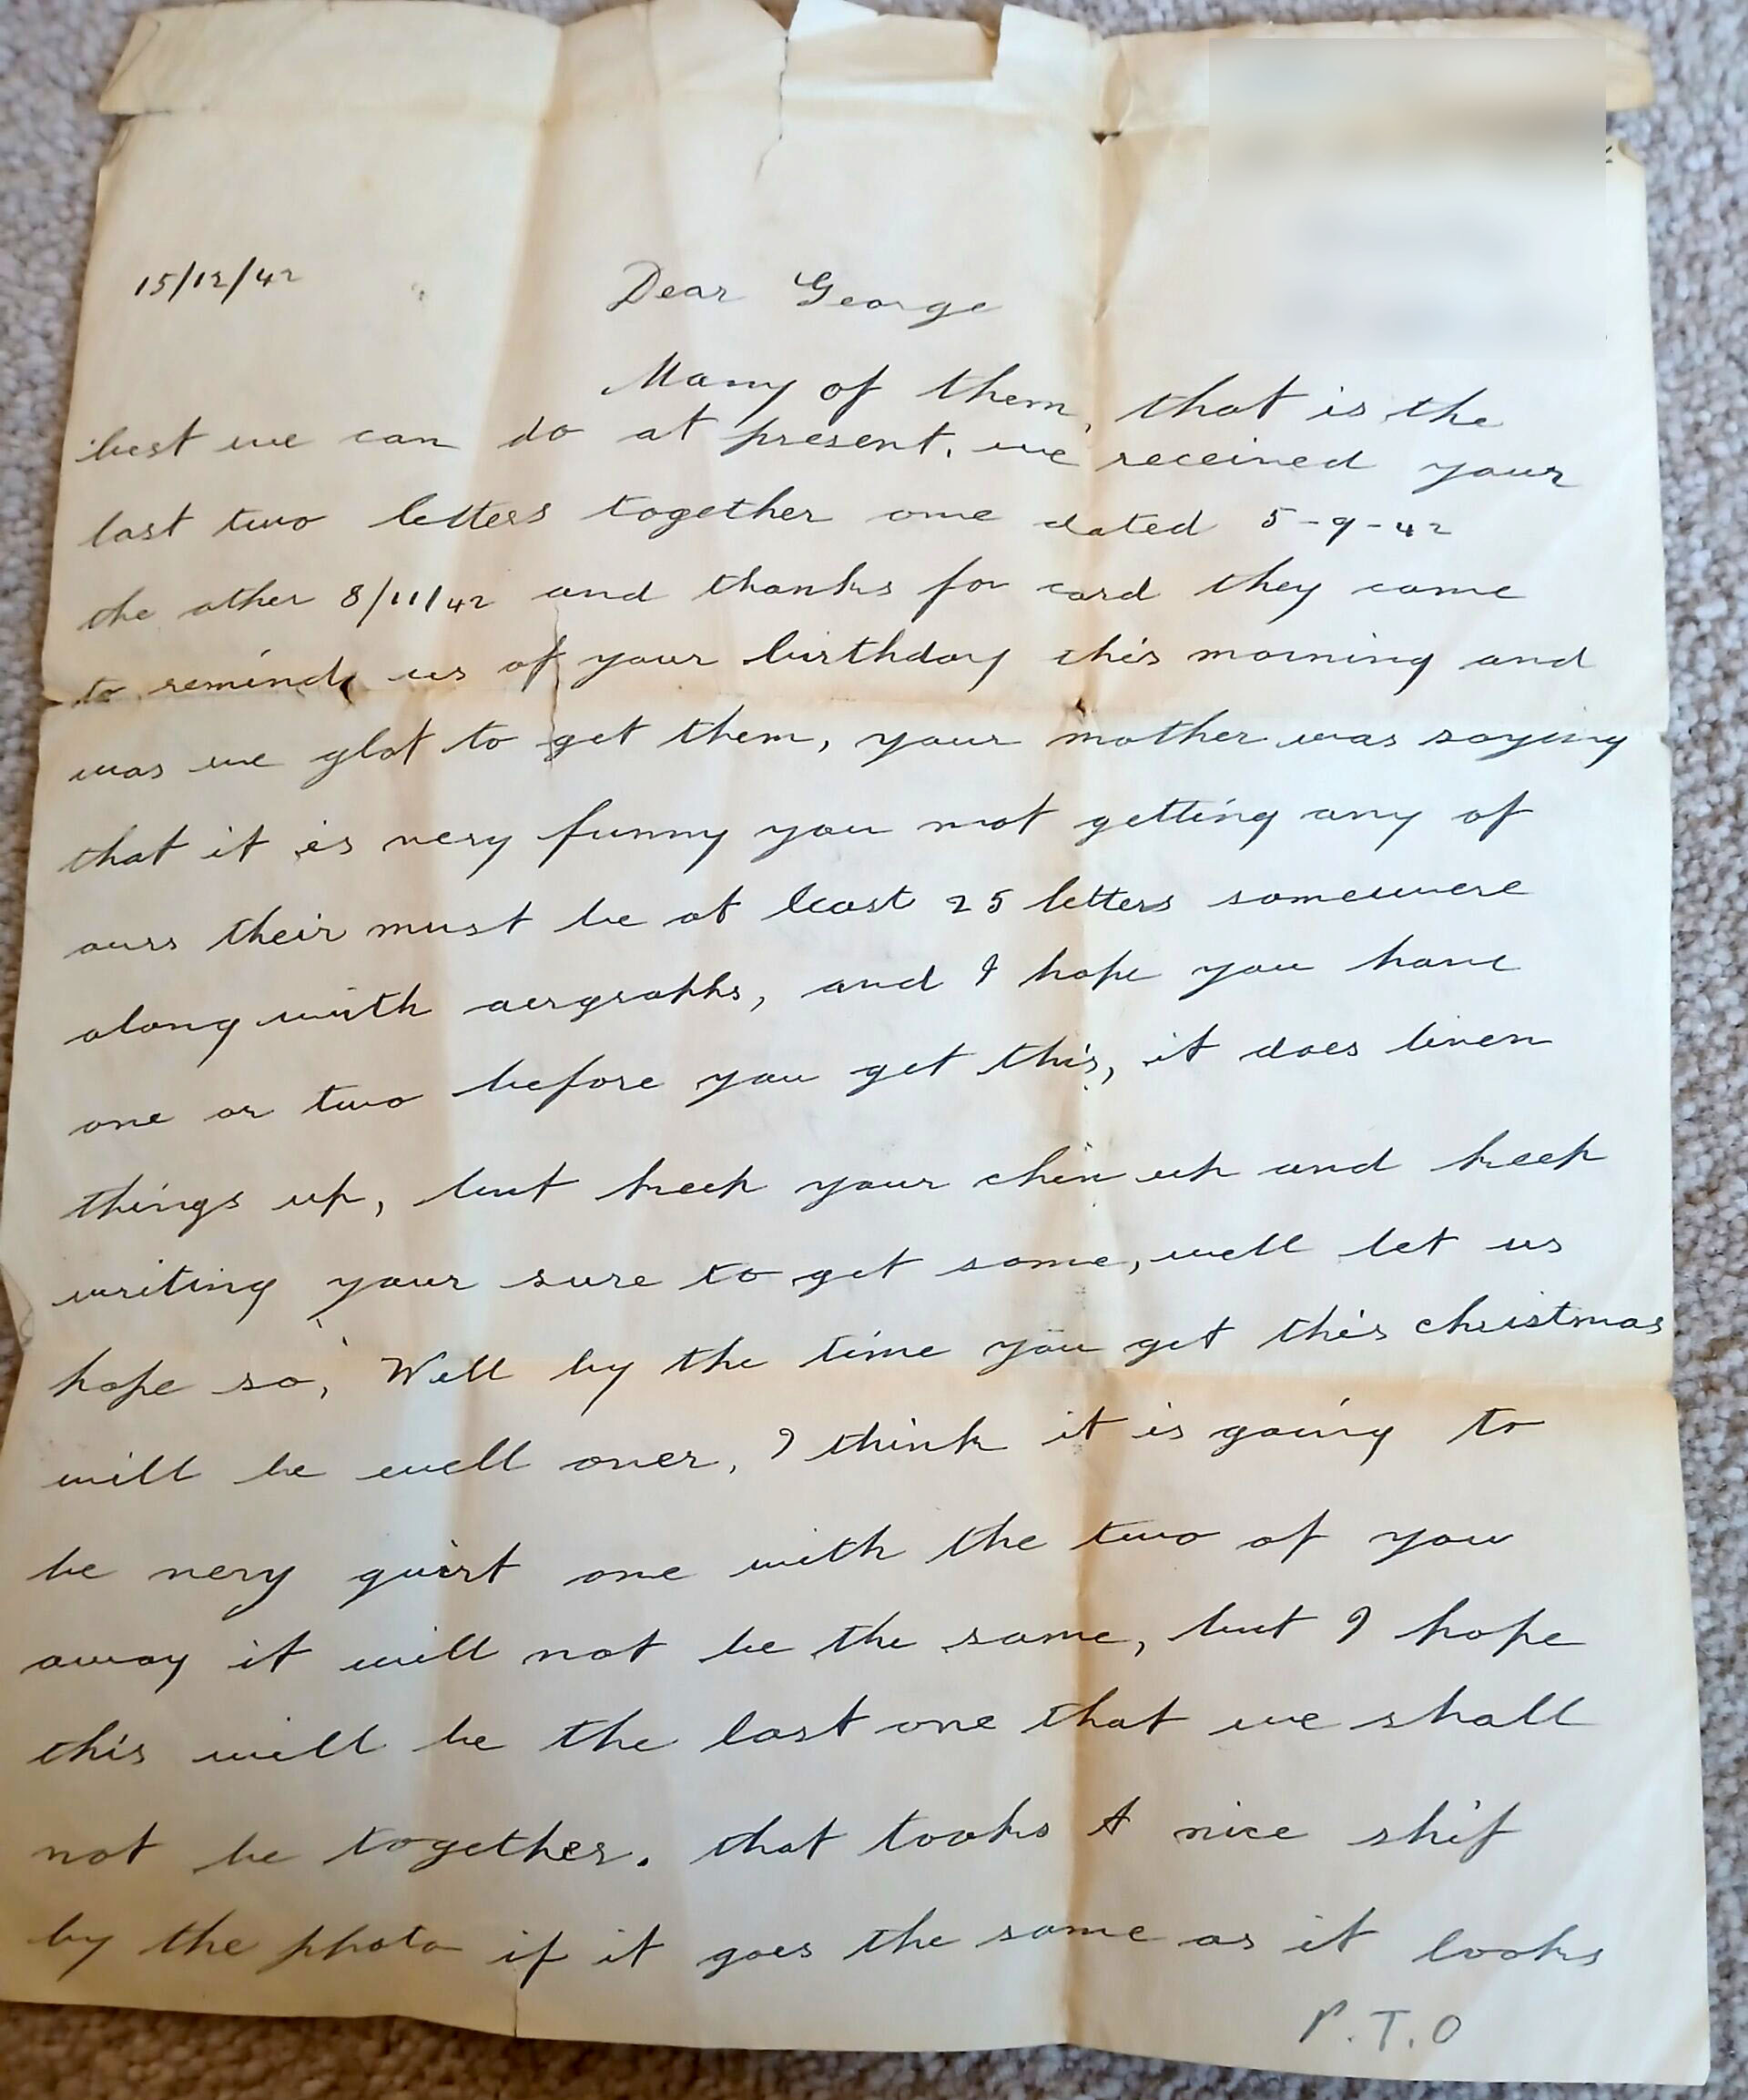 15/12/42
Dear George
Many of them, that is the
best we can do at present. we received your
last two letters together one dated 5-9-42
the other 8/11/42 and thanks for card they came
to remind us of your birthday this morning and
was we glat to get them, your mother was saying
that it is very funny you not getting any of
ours their must be at least 25 letters somewere
along with aergraphs, and I hope you have
one or two before you get this, it does liven
things up, but keep your chin up and keep
writing your sure to get some, well let us
hope so, Well by the time you get this christmas
will be well over, I think it is going to
be very quiet one with the two of you
away it will not be the same, but I hope
this will be the last one that we shall
not be together. that looks A nice ship
by the photo if it goes the same as it looks
P.T.O